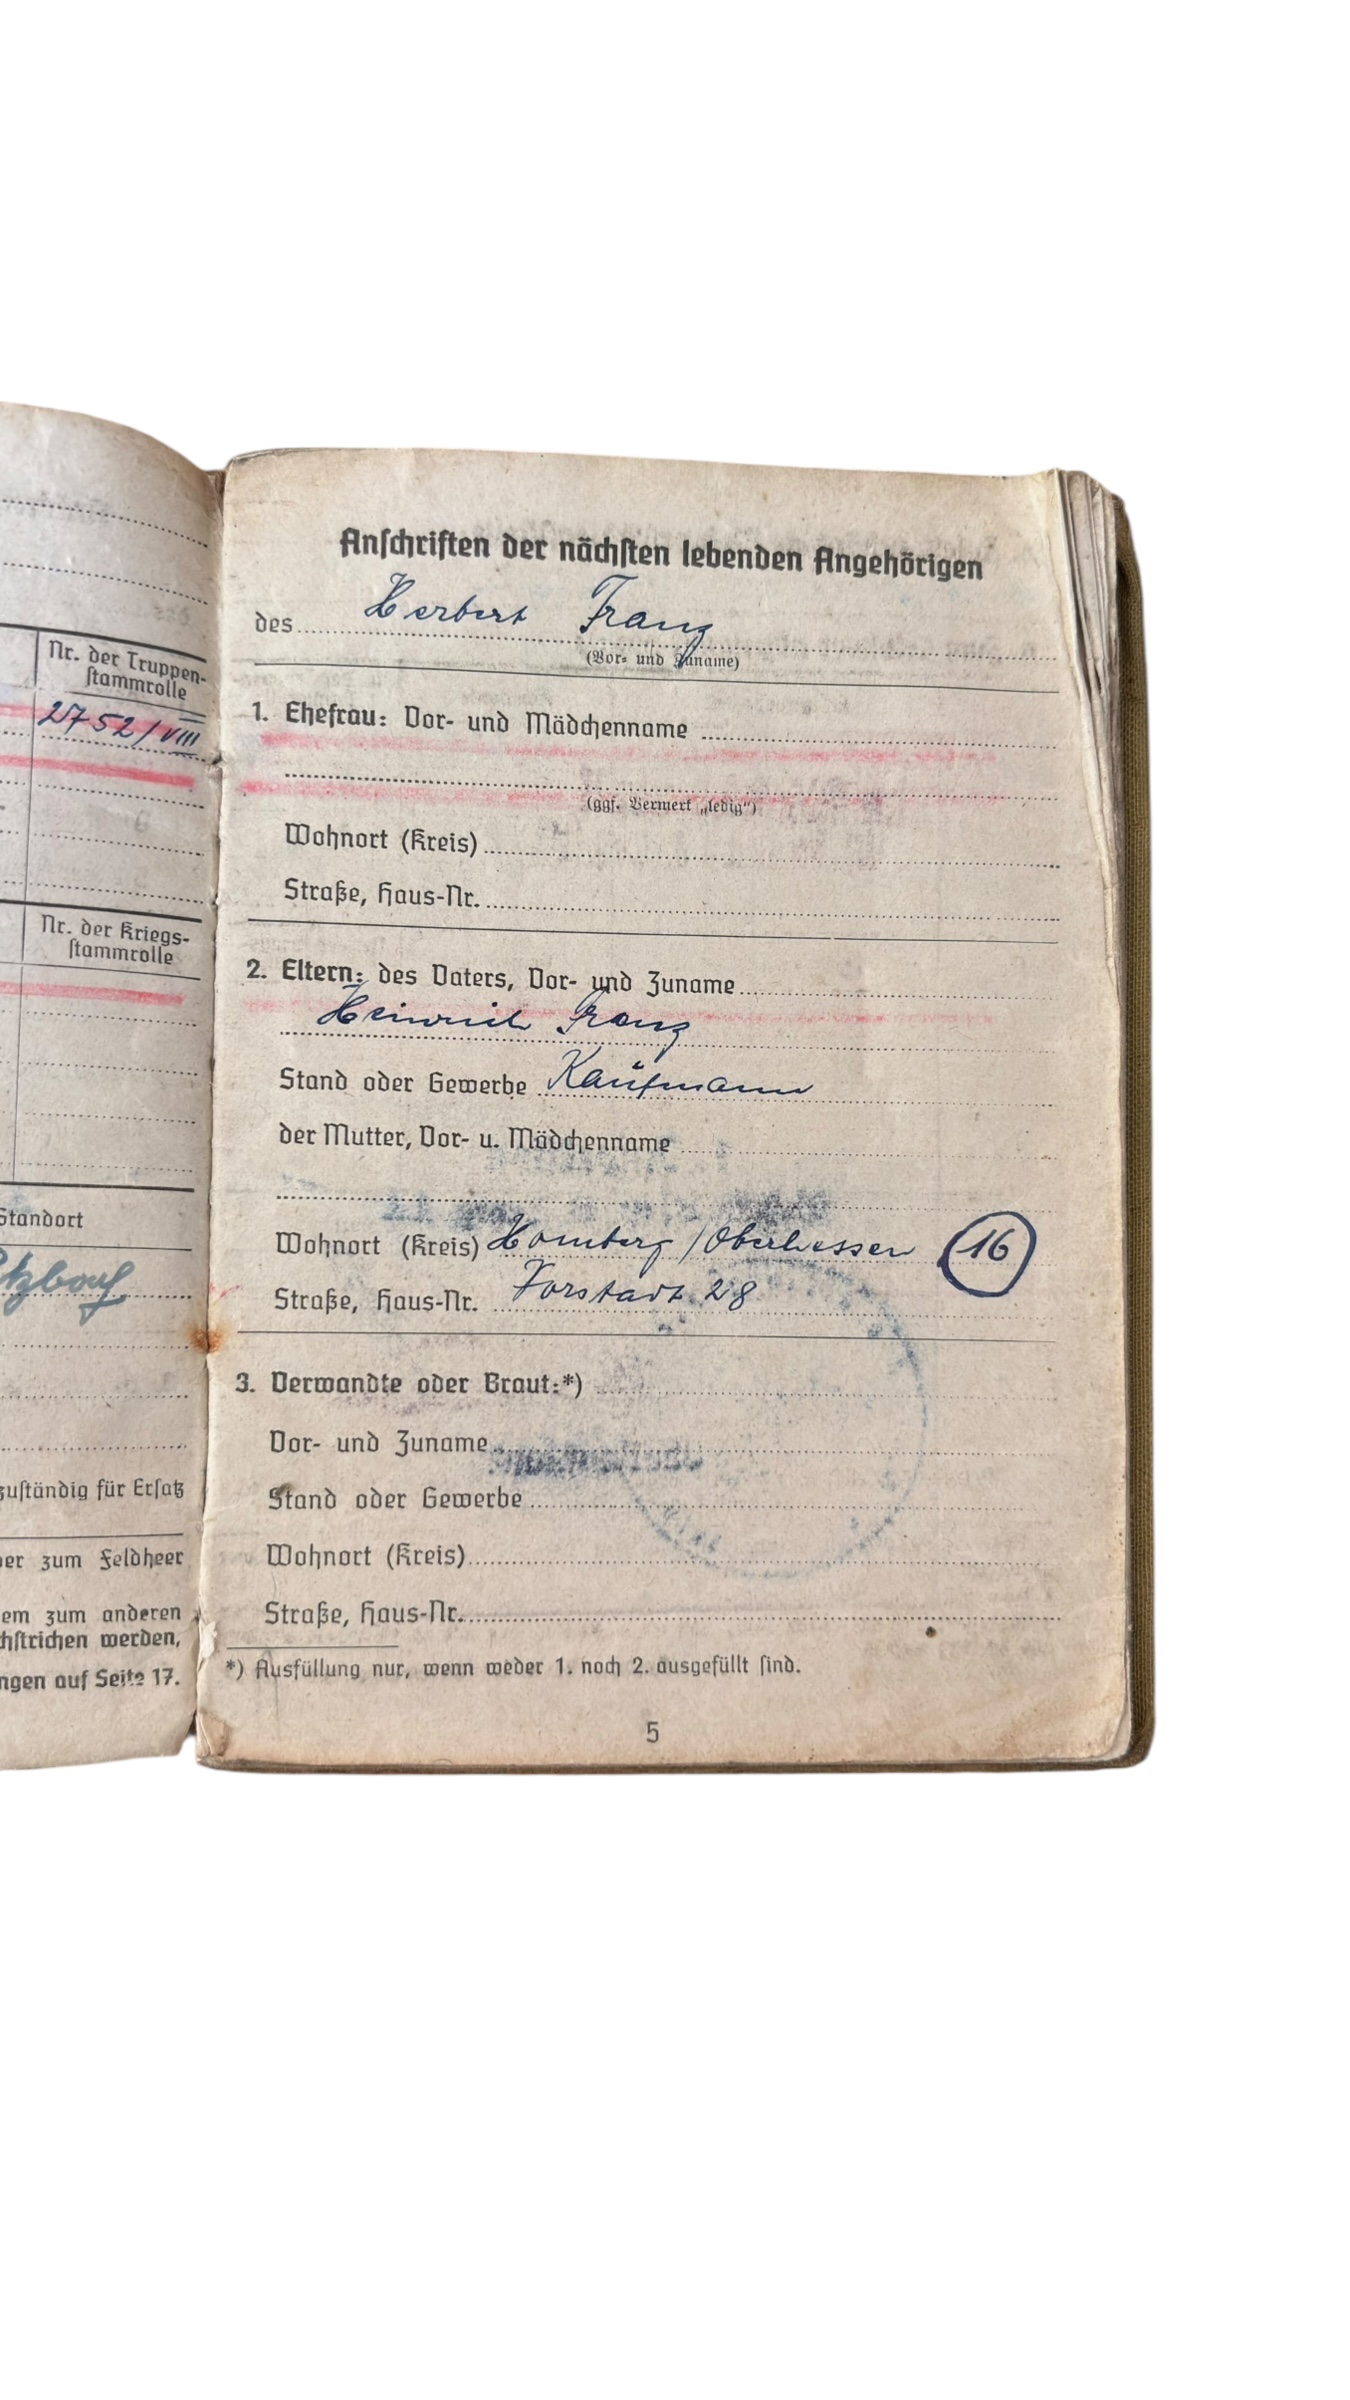 Nr. der Truppen-
stammrolle
2752/VIII
Nr. der Kriegs-
stammrolle
Standort
zuständig für Ersatz
zum Feldheer
zum anderen
werden,
auf Seite 17.
Anschriften der nächsten lebenden Angehörigen
des Herbert Franz
(Vor- und Zuname)
1. Ehefrau: Vor- und Mädchenname
(ggf. Vermerk „ledig“)
Wohnort (Kreis)
Straße, Haus-Nr.
2. Eltern: des Vaters, Vor- und Zuname
Heinrich Franz
Stand oder Gewerbe Kaufmann
der Mutter, Vor- u. Mädchenname
Wohnort (Kreis) Homberg / Oberhessen 16
Straße, Haus-Nr. Vorstadt 28
3. Verwandte oder Braut:*)
Vor- und Zuname
Stand oder Gewerbe
Wohnort (Kreis)
Straße, Haus-Nr.
*) Ausfüllung nur, wenn weder 1. noch 2. ausgefüllt sind.
5